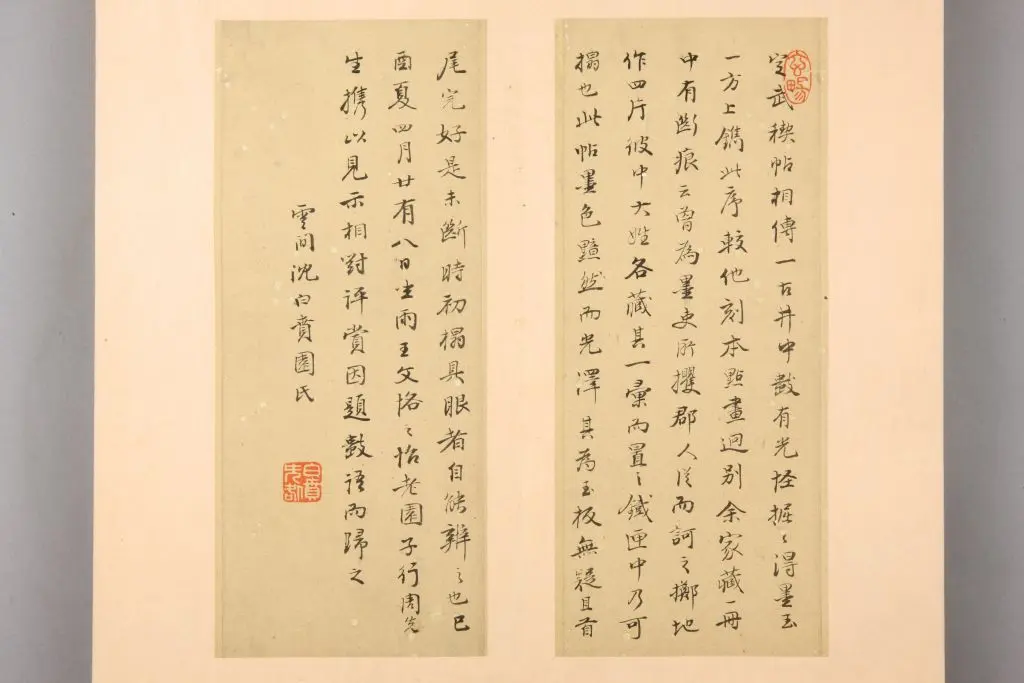 定武稧帖相傳一古井中數有光怪掘〻得墨玉
一方上鐫此序較他刻本點畫迥別余家藏一冊
中有斷痕云曾為墨吏所攫郡人從而訶之擲地
作四片彼中大姓各藏其一彙而置〻鐵匣中乃可
搨也此帖墨色黯然而光澤其為玉板無疑且首
尾完好是未斷時初搨具眼者自能辨〻也己
酉夏四月廿有八日坐雨王文恪〻怡老園子行周先
生攜以見示相對評賞因題數語而歸之
雲間沈白賁園氏